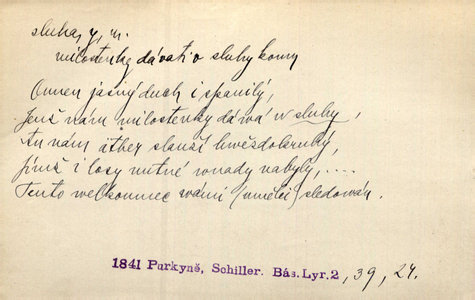 sluha, y, m.
milostenky dávati v sluhy komu
Onen jasný duch i spanilý,
Jenž nám milostenky dává w sluhy,
An nám äther slauží hwězdokruhý,
Jímž i losy mutné wnady nabyly, ....
Tento welkoumec wámi (umělci) sledowán.
1841 Purkyně, Schiller. Bás. Lyr. 2, 39, 24.